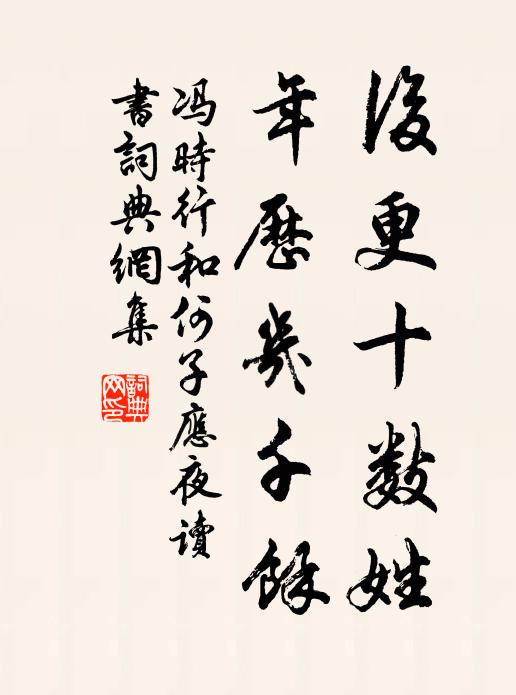 後更十数姓
年歷幾千餘
馮時行和何子應夜讀
書詞典網集
詞典
网印